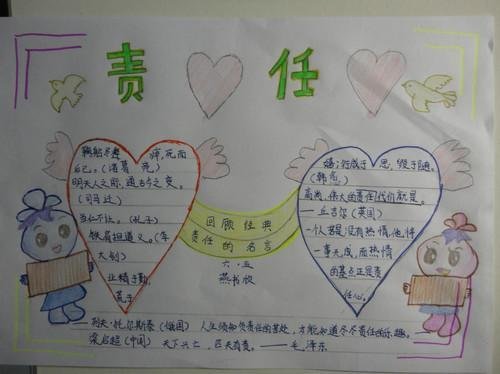 责任
鞠躬尽瘁，死而
后已。（诸葛亮）
明天人之际，通古今之变。
（司马迁）
当仁不让。（孔子）
铁肩担道义。（李
大钊）
业精于勤，
荒于
嬉；行成于思，毁于随。
（韩愈）
高尚、伟大的责任代价就是。
——丘吉尔（英国）
一个人若是没有热情，他将
一事无成，而热情
的基点正是责
任心。
回顾经典
责任的名言
六·五
燕书欣
——列夫·托尔斯泰（俄国） 人生须知负责任的苦处，方能知道尽责任的乐趣。
梁启超（中国） 天下兴亡，匹夫有责。——毛泽东